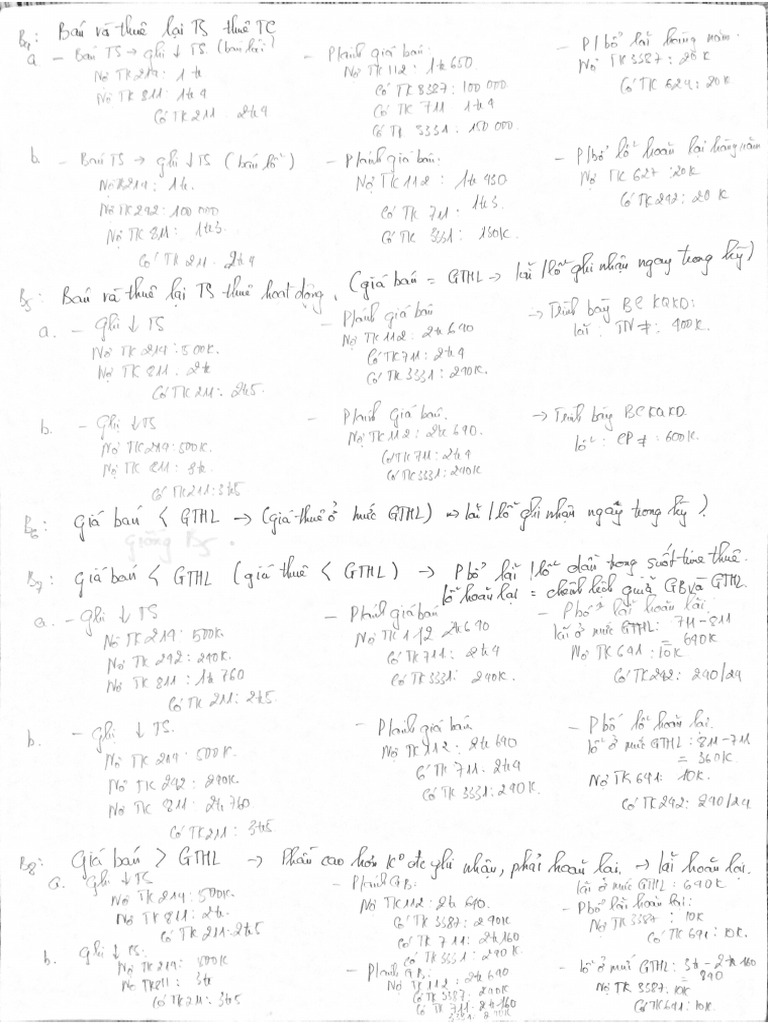 B4: Bán và thuê lại TS thuê TC
a - Bán TS → ghi ↓ TS (bán lãi)
Nợ TK 214: 1tẻ
Nợ TK 811: 1tẻ4
Có TK 211: 2tẻ4
- P/ánh giá bán:
Nợ TK 112: 1tẻ650
Có TK 3387: 100 000
Có TK 711: 1tẻ4
Có TK 3331: 150 000.
- P/bổ lãi hàng năm.
Nợ TK 3387: 20K
Có TK 627: 20K
b. - Bán TS → ghi ↓ TS (bán lỗ)
Nợ 214: 1tẻ.
Nợ TK 242: 100 000
Nợ TK 811: 1tẻ3
Có TK 211: 2tẻ4
- P/ánh giá bán.
Nợ TK 112: 1tẻ430
Có TK 711: 1tẻ3
Có TK 3331: 130K.
- P/bổ lỗ hoãn lại hàng năm
Nợ TK 627: 20K
Có TK 242: 20K
B5: Bán và thuê lại TS thuê hoạt động. (giá bán = GTHL → lãi/lỗ ghi nhận ngay trong kỳ)
a. - Ghi ↓ TS
Nợ TK 214: 500K.
Nợ TK 811: 2tẻ
Có TK 211: 2tẻ5.
- P/ánh giá bán
Nợ TK 112: 2tẻ640
Có TK 711: 2tẻ4
Có TK 3331: 240K.
→ Trình bày BC KQKD:
lãi: TN ≠: 400K.
b. - Ghi ↓ TS
Nợ TK 214: 500K.
Nợ TK 811: 3tẻ.
Có TK 211: 3tẻ5
- P/ánh giá bán.
Nợ TK 112: 2tẻ640.
Có TK 711: 2tẻ4
Có TK 3331: 240K
→ Trình bày BCKQKD
lỗ: CP ≠: 600K.
B6: Giá bán < GTHL → (giá thuê ở mức GTHL) → lãi/lỗ ghi nhận ngay trong kỳ).
Giống B5.
B7: Giá bán < GTHL (giá thuê < GTHL) → P bổ lãi/lỗ dần trong suốt time thuê.
lỗ hoãn lại = chênh lệch giữa GB và GTHL.
a. - Ghi ↓ TS
Nợ TK 214: 500K.
Nợ TK 242: 240K.
Nợ TK 811: 1tẻ760
Có TK 211: 2tẻ5.
- P/ánh giá bán
Nợ TK 112 2tẻ640
Có TK 711: 2tẻ4
Có TK 3331: 240K.
- P bổ lãi hoãn lại.
lãi ở mức GTHL: 711-811
= 640K
Nợ TK 641: 10K
Có TK 242: 240/24
b. - Ghi ↓ TS.
Nợ TK 214: 500K.
Nợ TK 242: 240K.
Nợ TK 811: 2tẻ760
Có TK 211: 3tẻ5
- P/ánh giá bán
Nợ TK 112: 2tẻ640
Có TK 711: 2tẻ4
Có TK 3331: 240K.
- P bổ lỗ hoãn lại.
lỗ ở mức GTHL: 811-711
= 360K
Nợ TK 641: 10K.
Có TK 242: 240/24.
B8: Giá bán > GTHL → Phần cao hơn K0 đc ghi nhận, phải hoãn lại. → lãi hoãn lại.
a. Ghi ↓ TS
Nợ TK 214: 500K.
Nợ TK 811: 2tẻ.
Có TK 211: 2tẻ5
- P/ánh GB:
Nợ TK 112: 2tẻ640.
Có TK 3387: 240K
Có TK 711: 2tẻ160
Có TK 3331: 240K
lãi ở mức GTHL: 640K
- P bổ lãi hoãn lại:
Nợ TK 3387: 10K
Có TK 641: 10K.
b. Ghi ↓ TS:
Nợ TK 214: 500K
Nợ TK 811: 3tẻ
Có TK 711: 3tẻ5
- P/ánh GB:
Nợ TK 112: 2tẻ640
Có TK 3387: 240K
Có TK 711: 2tẻ160
3331: 240K
- lỗ ở mức GTHL: 3tẻ - 2tẻ160
= 840
Nợ TK 3387: 10K
Có TK 641: 10K.